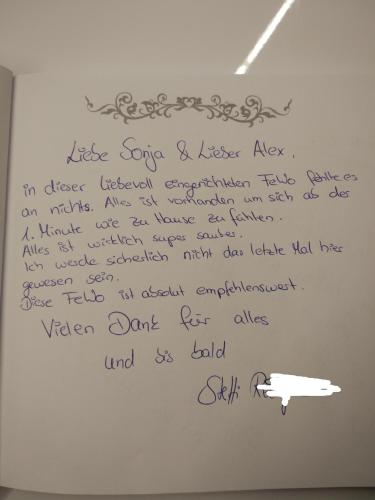 Liebe Sonja & Lieber Alex,
in dieser liebevoll eingerichteten FeWo fehlte es
an nichts. Alles ist vorhanden um sich ab der
1. Minute wie zu Hause zu fühlen.
Alles ist wirklich super sauber.
Ich werde sicherlich nicht das letzte Mal hier
gewesen sein.
Diese FeWo ist absolut empfehlenswert.
Vielen Dank für alles
und bis bald
Steffi